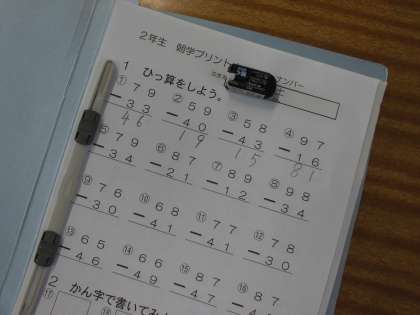 2年生 朝学プリント
ンバー
1 ひっ算をしよう。
① 79 − 33 46
② 59 − 40 19
③ 58 − 43 15
④ 97 − 16 81
⑤ 79 − 34
⑥ 87 − 21
⑦ 89 − 12
⑧ 98 − 34
⑨ 76 − 30
⑩ 68 − 41
⑪ 77 − 41
⑫ 78 − 30
⑬ 65 − 46
⑭ 66 − 49
⑮ 87 − 47
⑯ 87
2 かん字で書いてみ
⑰
⑱